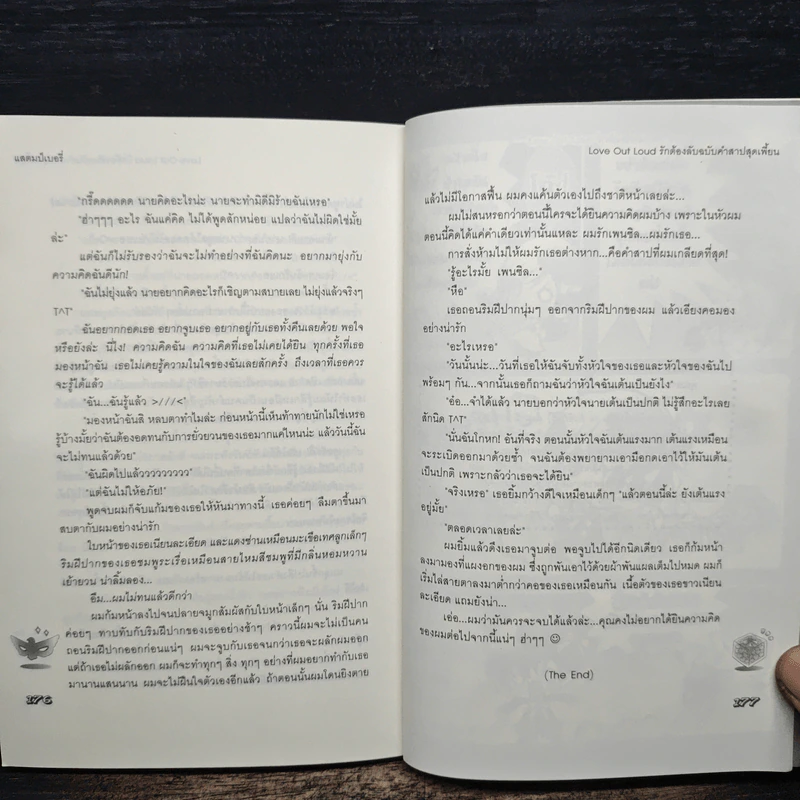 แสตมป์เบอรี่
"กรี๊ดดดดดด นายคิดอะไรน่ะ นายจะทำมิดีมิร้ายฉันเหรอ"
"ฮ่าๆๆๆ อะไร ฉันแค่คิด ไม่ได้พูดสักหน่อย แปลว่าฉันไม่ผิดใช่มั้ย
ล่ะ"
แต่ฉันก็ไม่รับรองว่าฉันจะไม่ทำอย่างที่ฉันคิดนะ อยากมายุ่งกับ
ความคิดฉันดีนัก!
"ฉันไม่ยุ่งแล้ว นายอยากคิดอะไรก็เชิญตามสบายเลย ไม่ยุ่งแล้วจริงๆ
T^T"
ฉันอยากกอดเธอ อยากจูบเธอ อยากอยู่กับเธอทั้งคืนเลยด้วย พอใจ
หรือยังล่ะ นี่ไง! ความคิดฉัน ความคิดที่เธอไม่เคยได้ยิน ทุกครั้งที่เธอ
มองหน้าฉัน เธอไม่เคยรู้ความในใจของฉันเลยสักครั้ง ถึงเวลาที่เธอควร
จะรู้ได้แล้ว
"ฉัน...ฉันรู้แล้ว >///<"
"มองหน้าฉันสิ หลบตาทำไมล่ะ ก่อนหน้านี้เห็นท้าทายนักไม่ใช่เหรอ
รู้บ้างมั้ยว่าฉันต้องอดทนกับการยั่วยวนของเธอมากแค่ไหนน่ะ แล้ววันนี้ฉัน
จะไม่ทนแล้วด้วย"
"ฉันผิดไปแล้ววววววววว"
"แต่ฉันไม่ให้อภัย!"
พูดจบผมก็จับแก้มของเธอให้หันมาทางนี้ เธอค่อยๆ ลืมตาขึ้นมา
สบตากับผมอย่างน่ารัก
ใบหน้าของเธอเนียนละเอียด และแดงซ่านเหมือนมะเขือเทศลูกเล็กๆ
ริมฝีปากของเธอชมพูระเรื่อเหมือนสายไหมสีชมพูที่มีกลิ่นหอมหวาน
เย้ายวน น่าลิ้มลอง...
อืม...ผมไม่ทนแล้วดีกว่า
ผมก้มหน้าลงไปจนปลายจมูกสัมผัสกับใบหน้าเล็กๆ นั่น ริมฝีปาก
ค่อยๆ ทาบทับกับริมฝีปากของเธออย่างช้าๆ คราวนี้ผมจะไม่เป็นคน
ถอนริมฝีปากออกก่อนแน่ๆ ผมจะจูบกับเธอจนกว่าเธอจะผลักผมออก
แต่ถ้าเธอไม่ผลักออก ผมก็จะทำทุกๆ สิ่ง ทุกๆ อย่างที่ผมอยากทำกับเธอ
มานานแสนนาน ผมจะไม่ฝืนใจตัวเองอีกแล้ว ถ้าตอนนั้นผมโดนยิงตาย
176
Love Out Loud รักต้องลับฉบับคำสาปสุดเพี้ยน
แล้วไม่มีโอกาสฟื้น ผมคงแค้นตัวเองไปถึงชาติหน้าเลยล่ะ...
ผมไม่สนหรอกว่าตอนนี้ใครจะได้ยินความคิดผมบ้าง เพราะในหัวผม
ตอนนี้คิดได้แค่คำเดียวเท่านั้นแหละ ผมรักเพนซิล...ผมรักเธอ...
การสั่งห้ามไม่ให้ผมรักเธอต่างหาก...คือคำสาปที่ผมเกลียดที่สุด!
"รู้อะไรมั้ย เพนซิล..."
"หือ"
เธอถอนริมฝีปากนุ่มๆ ออกจากริมฝีปากของผม แล้วเอียงคอมอง
อย่างน่ารัก
"อะไรเหรอ"
"วันนั้นน่ะ...วันที่เธอให้ฉันจับทั้งหัวใจของเธอและหัวใจของฉันไป
พร้อมๆ กัน...จากนั้นเธอก็ถามฉันว่าหัวใจฉันเต้นเป็นยังไง"
"อ๋อ...จำได้แล้ว นายบอกว่าหัวใจนายเต้นเป็นปกติ ไม่รู้สึกอะไรเลย
สักนิด T^T"
"นั่นฉันโกหก! อันที่จริง ตอนนั้นหัวใจฉันเต้นแรงมาก เต้นแรงเหมือน
จะระเบิดออกมาด้วยซ้ำ จนฉันต้องพยายามเอามือกดเอาไว้ให้มันเต้น
เป็นปกติ เพราะกลัวว่าเธอจะได้ยิน"
"จริงเหรอ" เธอยิ้มกว้างดีใจเหมือนเด็กๆ "แล้วตอนนี้ล่ะ ยังเต้นแรง
อยู่มั้ย"
"ตลอดเวลาเลยล่ะ"
ผมยิ้มแล้วดึงเธอมาจูบต่อ พอจูบไปได้อีกนิดเดียว เธอก็ก้มหน้า
ลงมามองที่แผงอกของผม ซึ่งถูกพันเอาไว้ด้วยผ้าพันแผลเต็มไปหมด ผมก็
เริ่มไล่สายตาลงมาต่ำกว่าคอของเธอเหมือนกัน เนื้อตัวของเธอขาวเนียน
ละเอียด แถมยังน่า...
เอ่อ...ผมว่ามันควรจะจบได้แล้วล่ะ...คุณคงไม่อยากได้ยินความคิด
ของผมต่อไปจากนี้แน่ๆ ฮ่าๆๆ ☺
(The End)
177